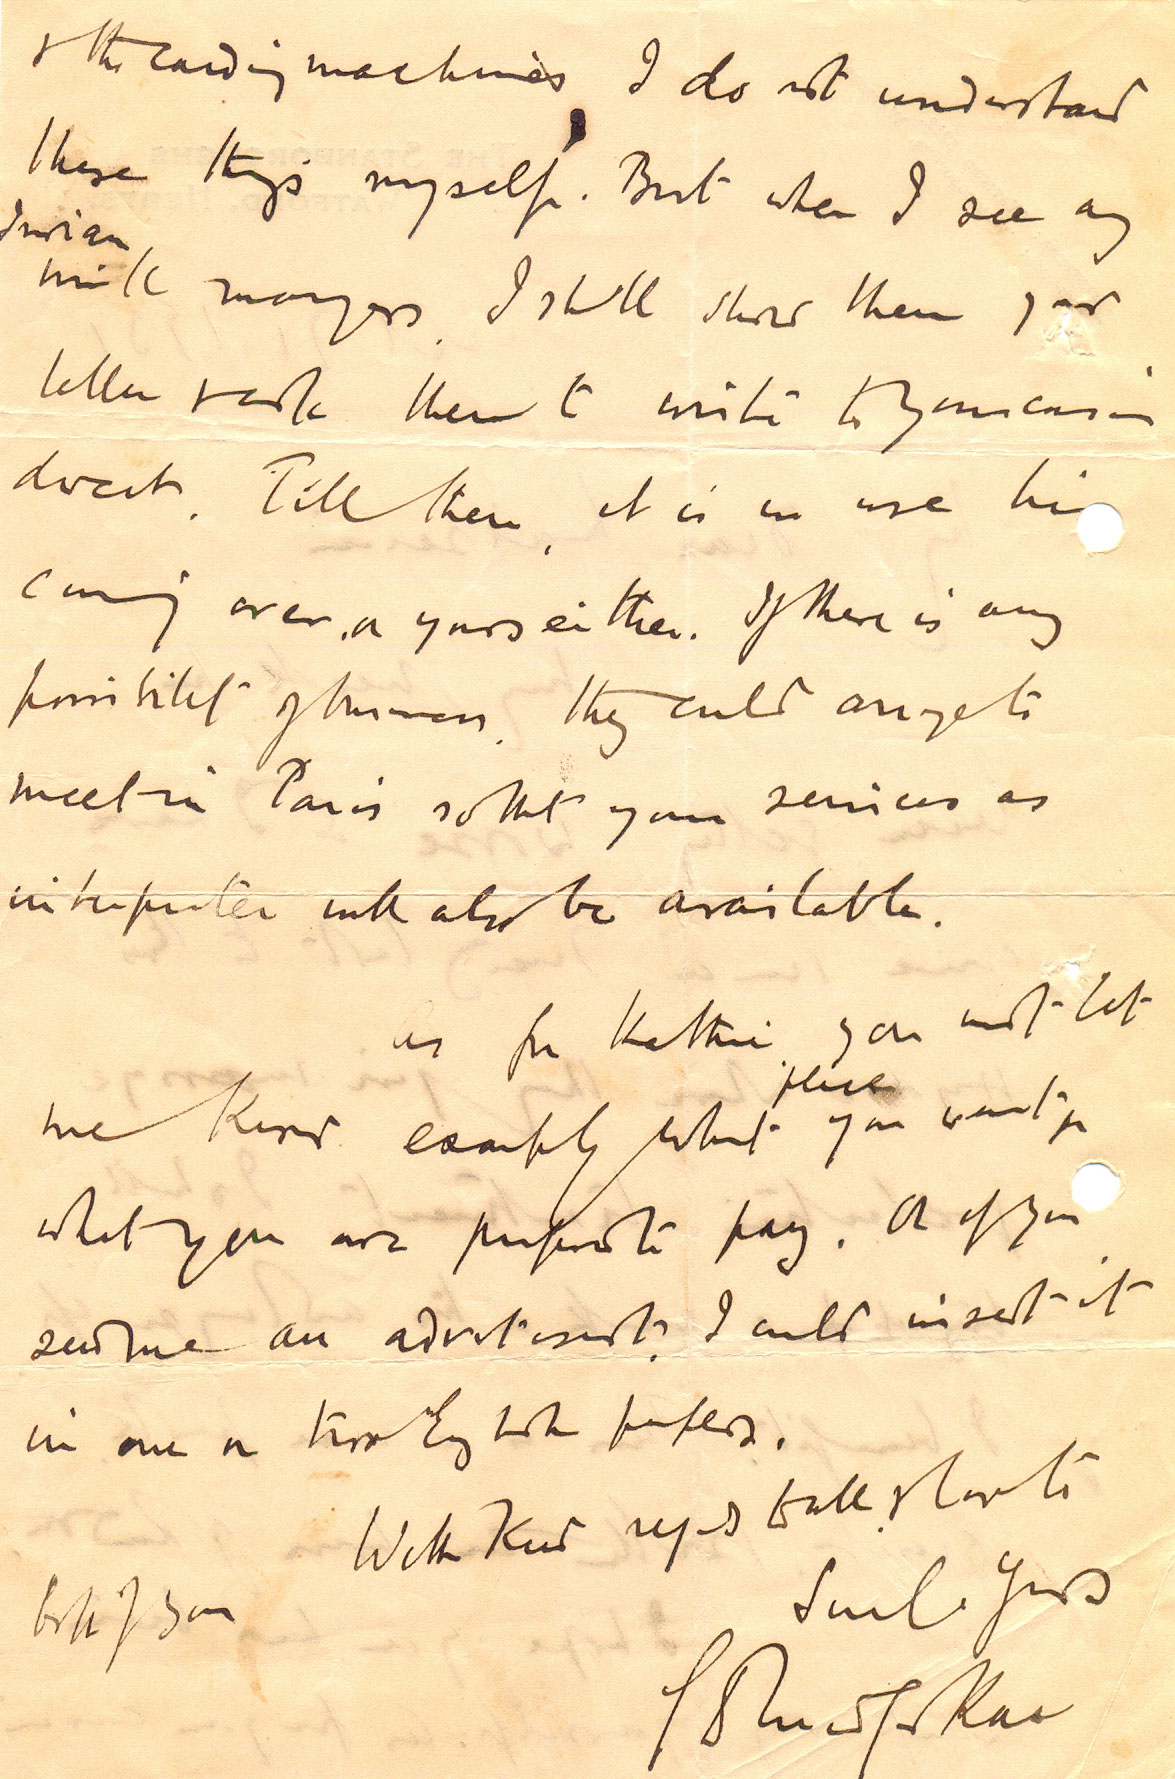 & the carding machines I do not understand
these things myself. But when I see any
Indian
mill managers, I shall show them your
letter & ask them to write to your cousin
direct. Till then, it is no use his
coming over, or yours either. If there is any
possibility of business, they could arrange to
meet in Paris so that your services as
interpreter will also be available.
As for Kathie, you must let
please
me know exactly what you want &
what you are prepared to pay. Or if you
send me an advertisement, I could insert it
in one or two English papers.
With kind regards to all, & love to
both of you
Yours